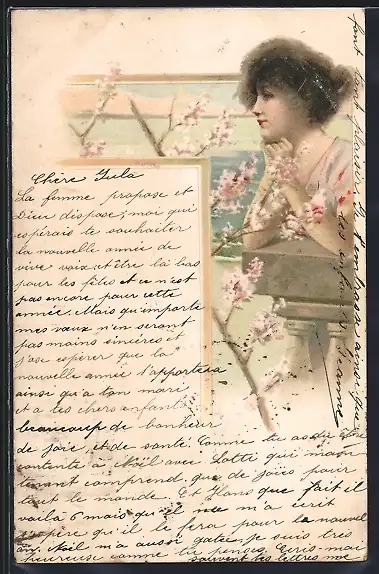 Chère Jula
La femme propose et
Dieu dispose; moi qui
espérais te souhaiter
la nouvelle année de
vive voix et être là bas
pour les fêtes et ce n'est
pas encore pour cette
année. Mais qu'importe
mes vœux n'en seront
pas moins sincères et
j'ose espérer que la
nouvelle année t'apportera
ainsi qu'à ton mari
et à tes chers enfants
beaucoup de bonheur
de joie, et de santé. Comme tu as dû être
contente à Noël avec Lotti qui main
tenant comprend que de joies pour
tout le monde. Et Hans que fait il
voilà 6 mois qu'il ne m'a écrit
j'espère qu'il le fera pour la nouvel
an. Noël m'a aussi gâtée, je suis très
heureuse comme tu penses. Ecris-moi
souvent tes lettres me
font tant plaisir. Je t'embrasse ainsi que
tes enfants
Jeanne